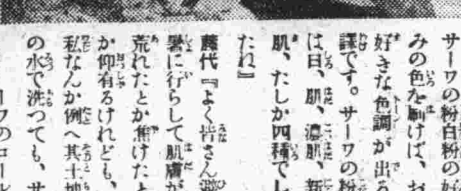 サーワの粉白粉の好
みの色を〓けば、お
好きな色調が出る
譯です。サーワの粉
は白、肌、濃肌、新
肌、たしか四種でし
たね』
藤代『よく皆さん避
暑に行らして肌膚が
荒れたとか焦けたと
か仰有るけれども、
私なんか例へ其土地
の水で洗つても、サ
ーワのコール